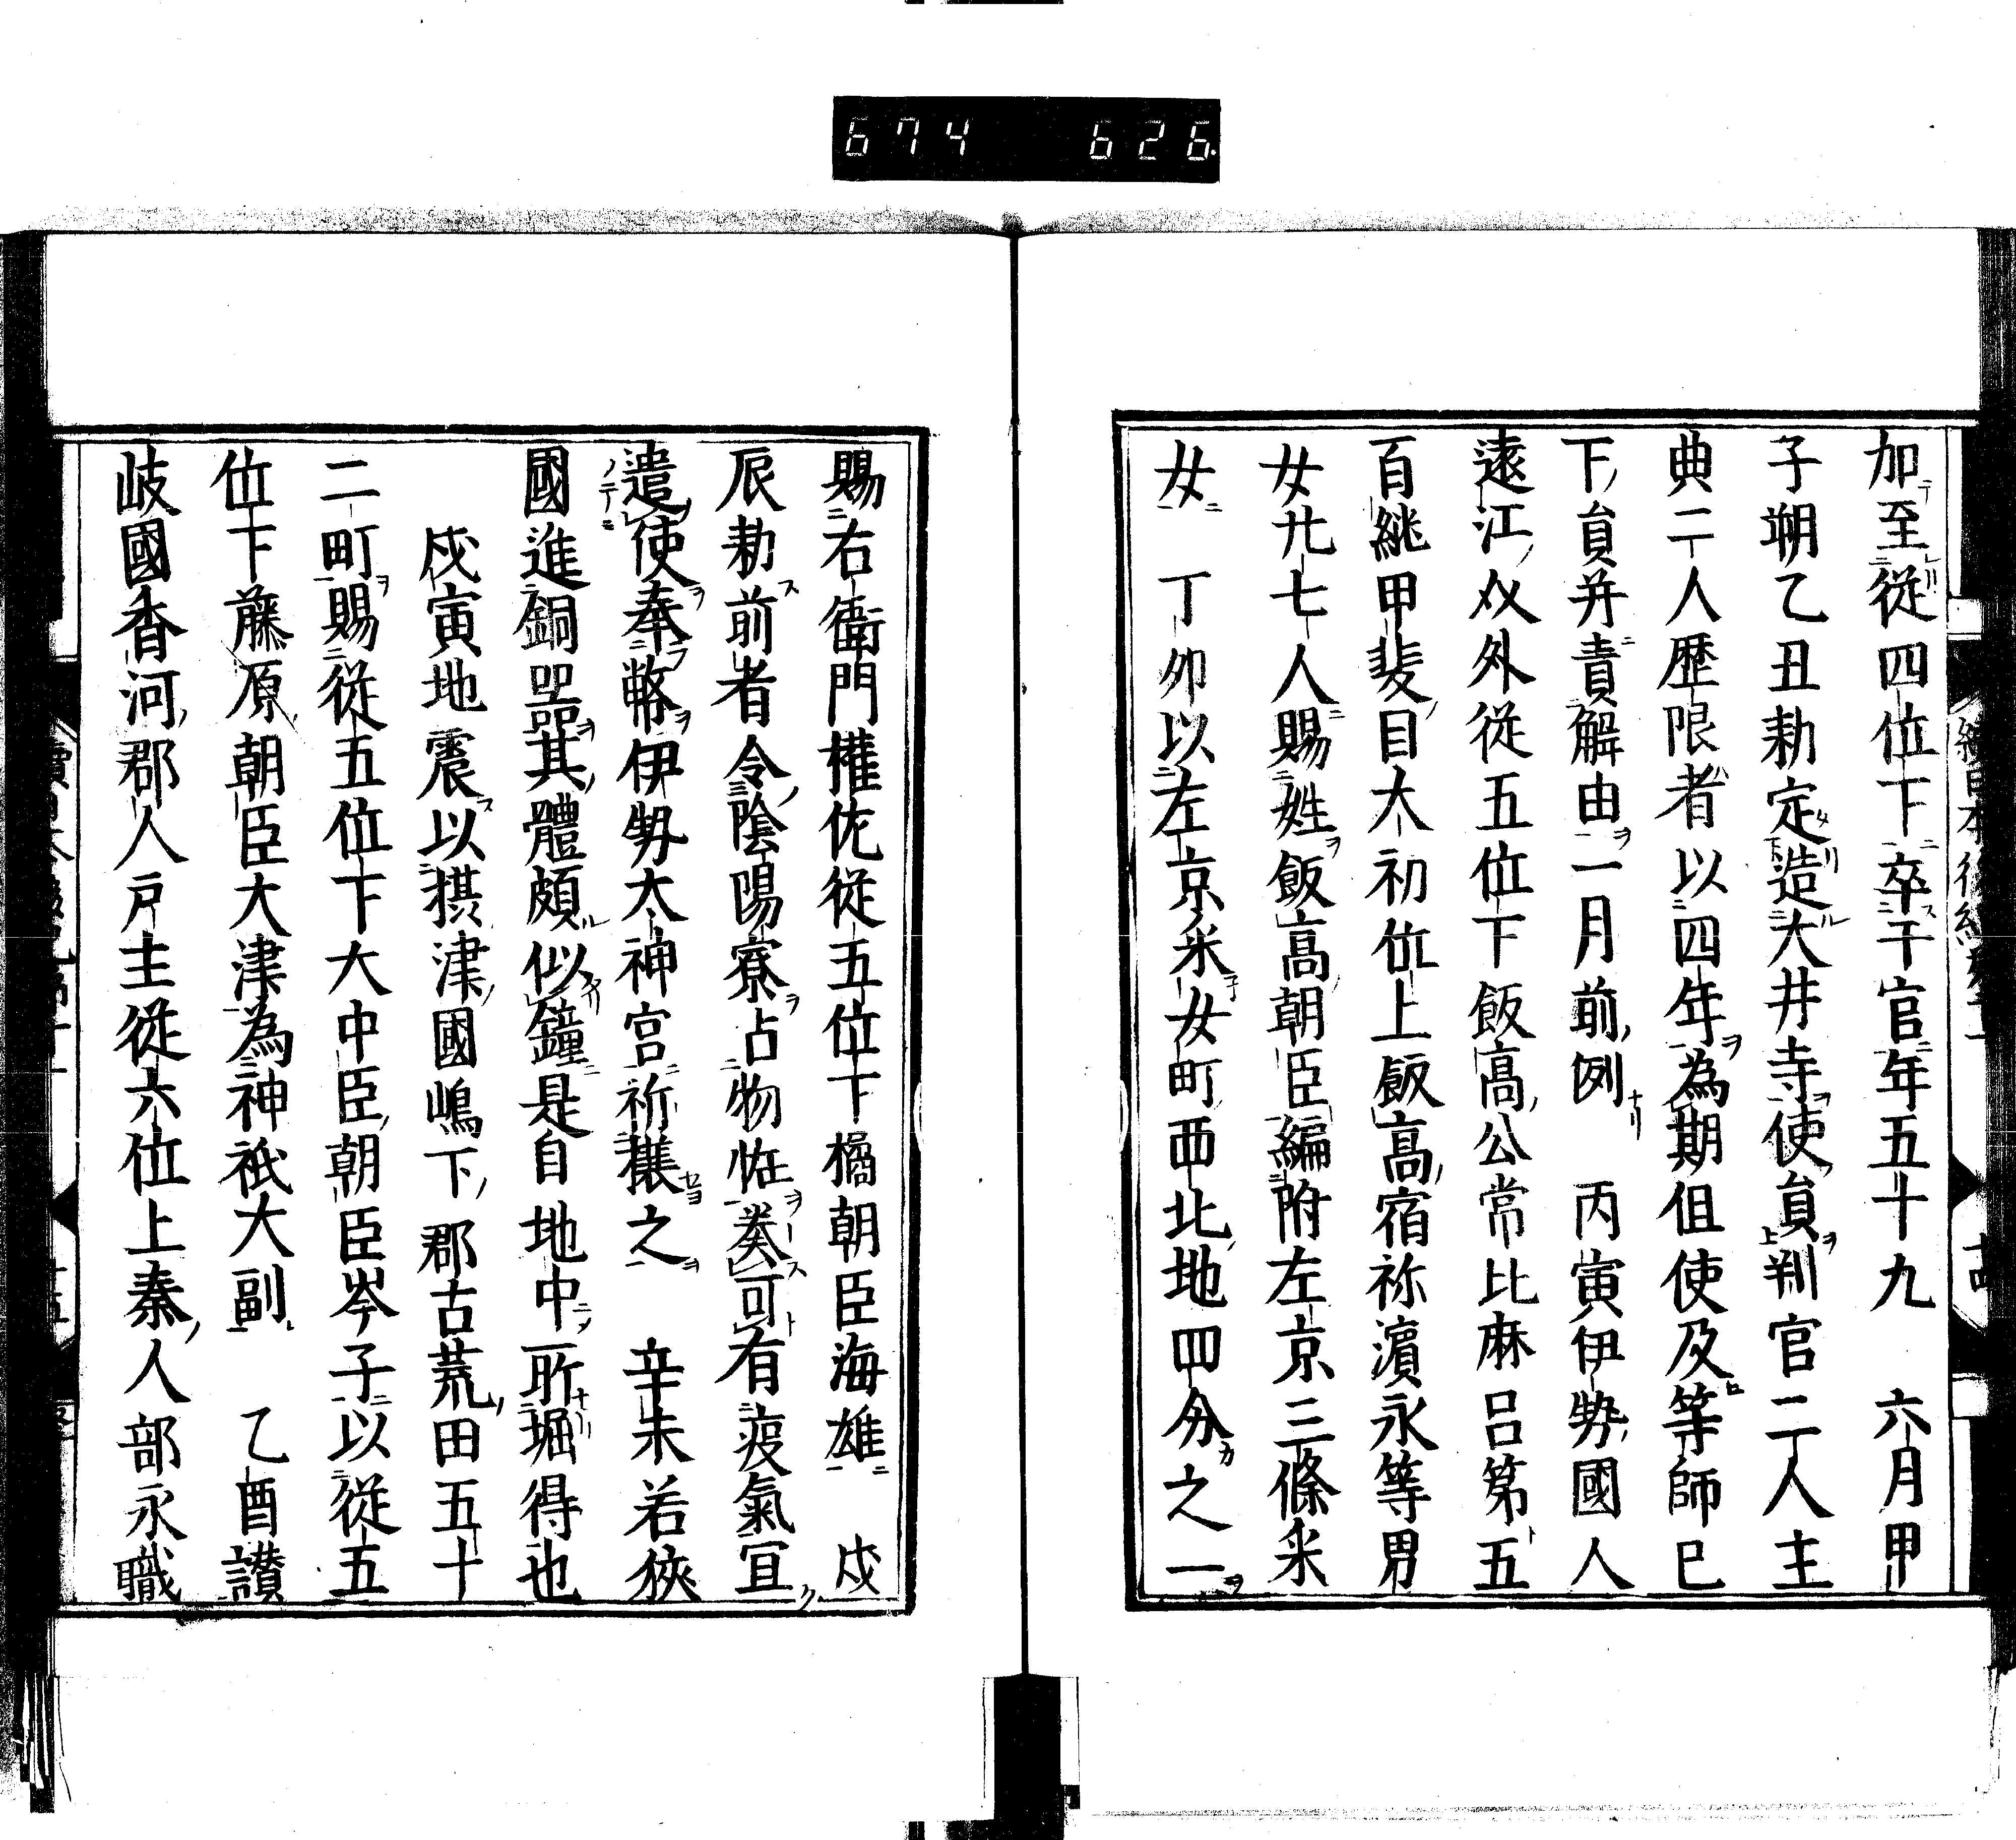 674 626
加至從四位下卒于官年五十九 六月甲
子朔乙丑勅定造大井寺使員判官二人主
典二人歷限者以四年為期但使及等師已
下員并責解由一月前例 丙寅伊勢國人
遠江火外從五位下飯高公常比麻呂第五
百継甲斐目大初位上飯高宿祢濱永等男
女廿七人賜姓飯高朝臣編附左京三條釆
女 丁卯以左京釆女町西北地四分之一
賜右衛門権佐從五位下橘朝臣海雄 戊
辰勅前者令陰陽寮占物恠奏可有疫氣宜
遣使奉幣伊勢大神宮祈攘之 辛未若狹
國進銅器其體頗似鐘是自地中所堀得也
戊寅地震以摂津國嶋下郡古荒田五十
二町賜從五位下大中臣朝臣岑子以從五
位下藤原朝臣大津為神祇大副 乙酉讃
岐國香河郡人戸主從六位上秦人部永職